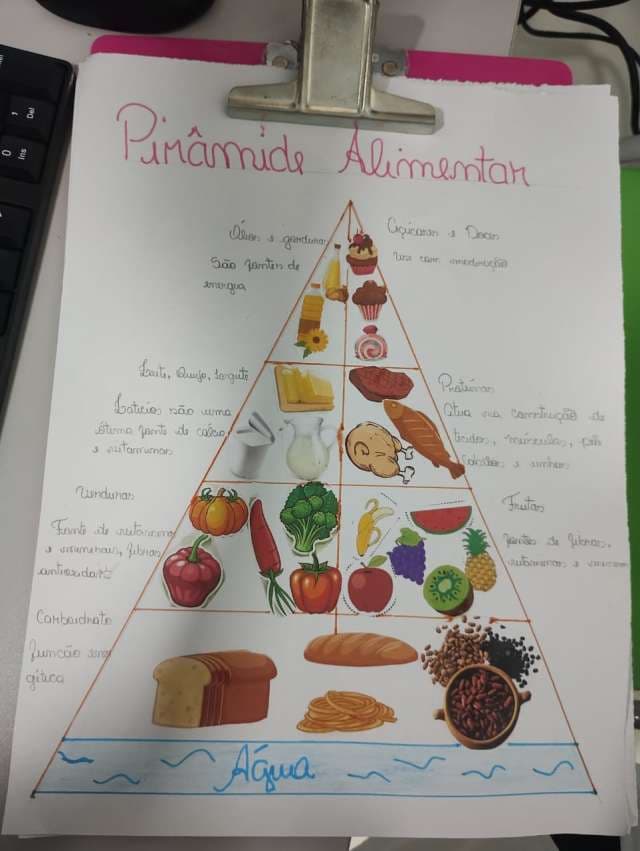 Pirâmide Alimentar
Óleos e gorduras
São fontes de
energia
Açúcares e Doces
Use com moderação
Leite, Queijo, Iorgute
Laticios são uma
ótima fonte de cálcio
e vitaminas
Proteínas
Atua na construção de
tecidos, músculos, pele
cabelos e unhas
Verduras
Fonte de vitaminas
e minerais, fibras
antioxidant
Frutas
fontes de fibras,
vitaminas e
Carboidrato
Função ener
gética
Água
Del
0
Ins